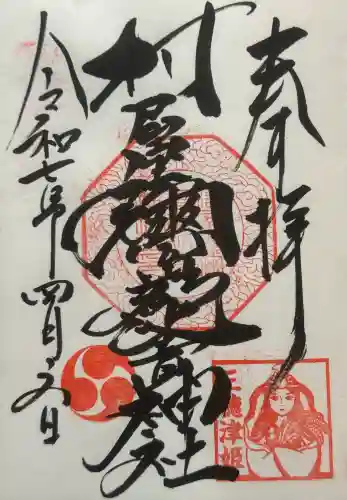 奉拝
村屋坐彌冨都比賣神社
令和七年四月日
三穂津姫